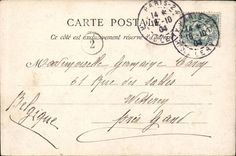 CARTE POSTALE
Ce côté est exclusivement réservé à l'adresse
PARIS-24
14
-10
04
2
Mademoiselle Germaine
61 Rue des
Wetteren
près Gand
Belgique